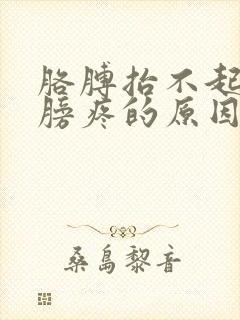 胳膊抬不起
膀疼的原因
桑岛黎音